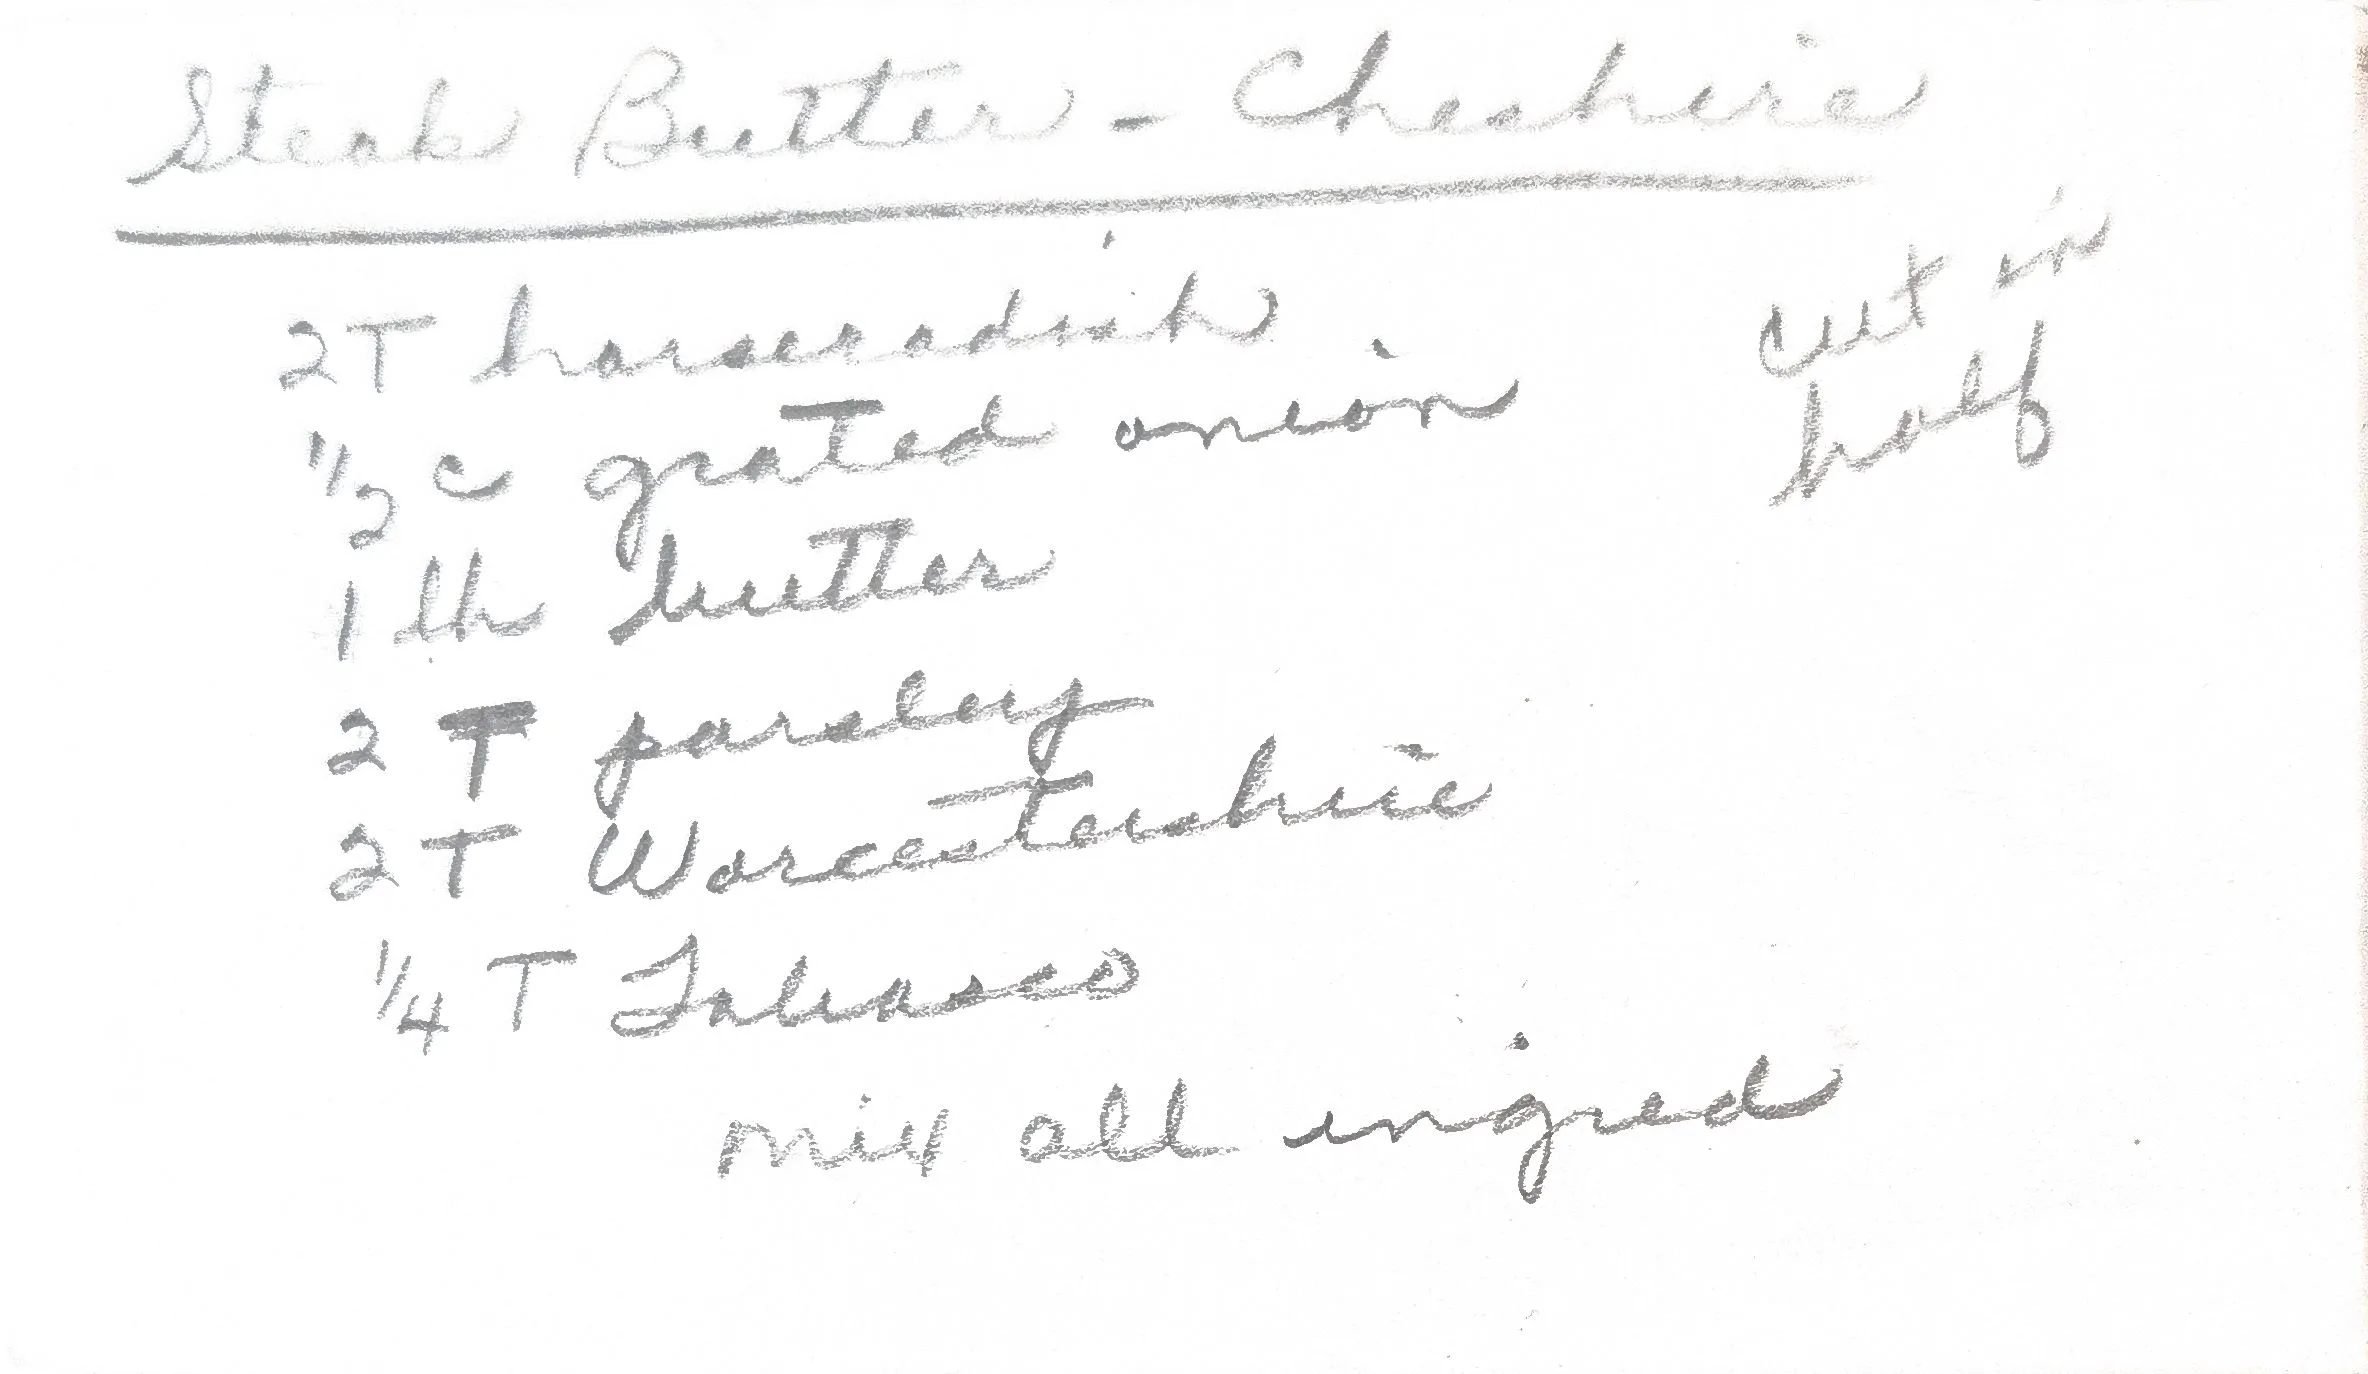 Steak Butter - Cheshire
2T horseradish
1/2 c grated onion
cut in
half
1 lb butter
2 T parsley
2 T Worcestershire
1/4 T Tabasco
mix all ingred